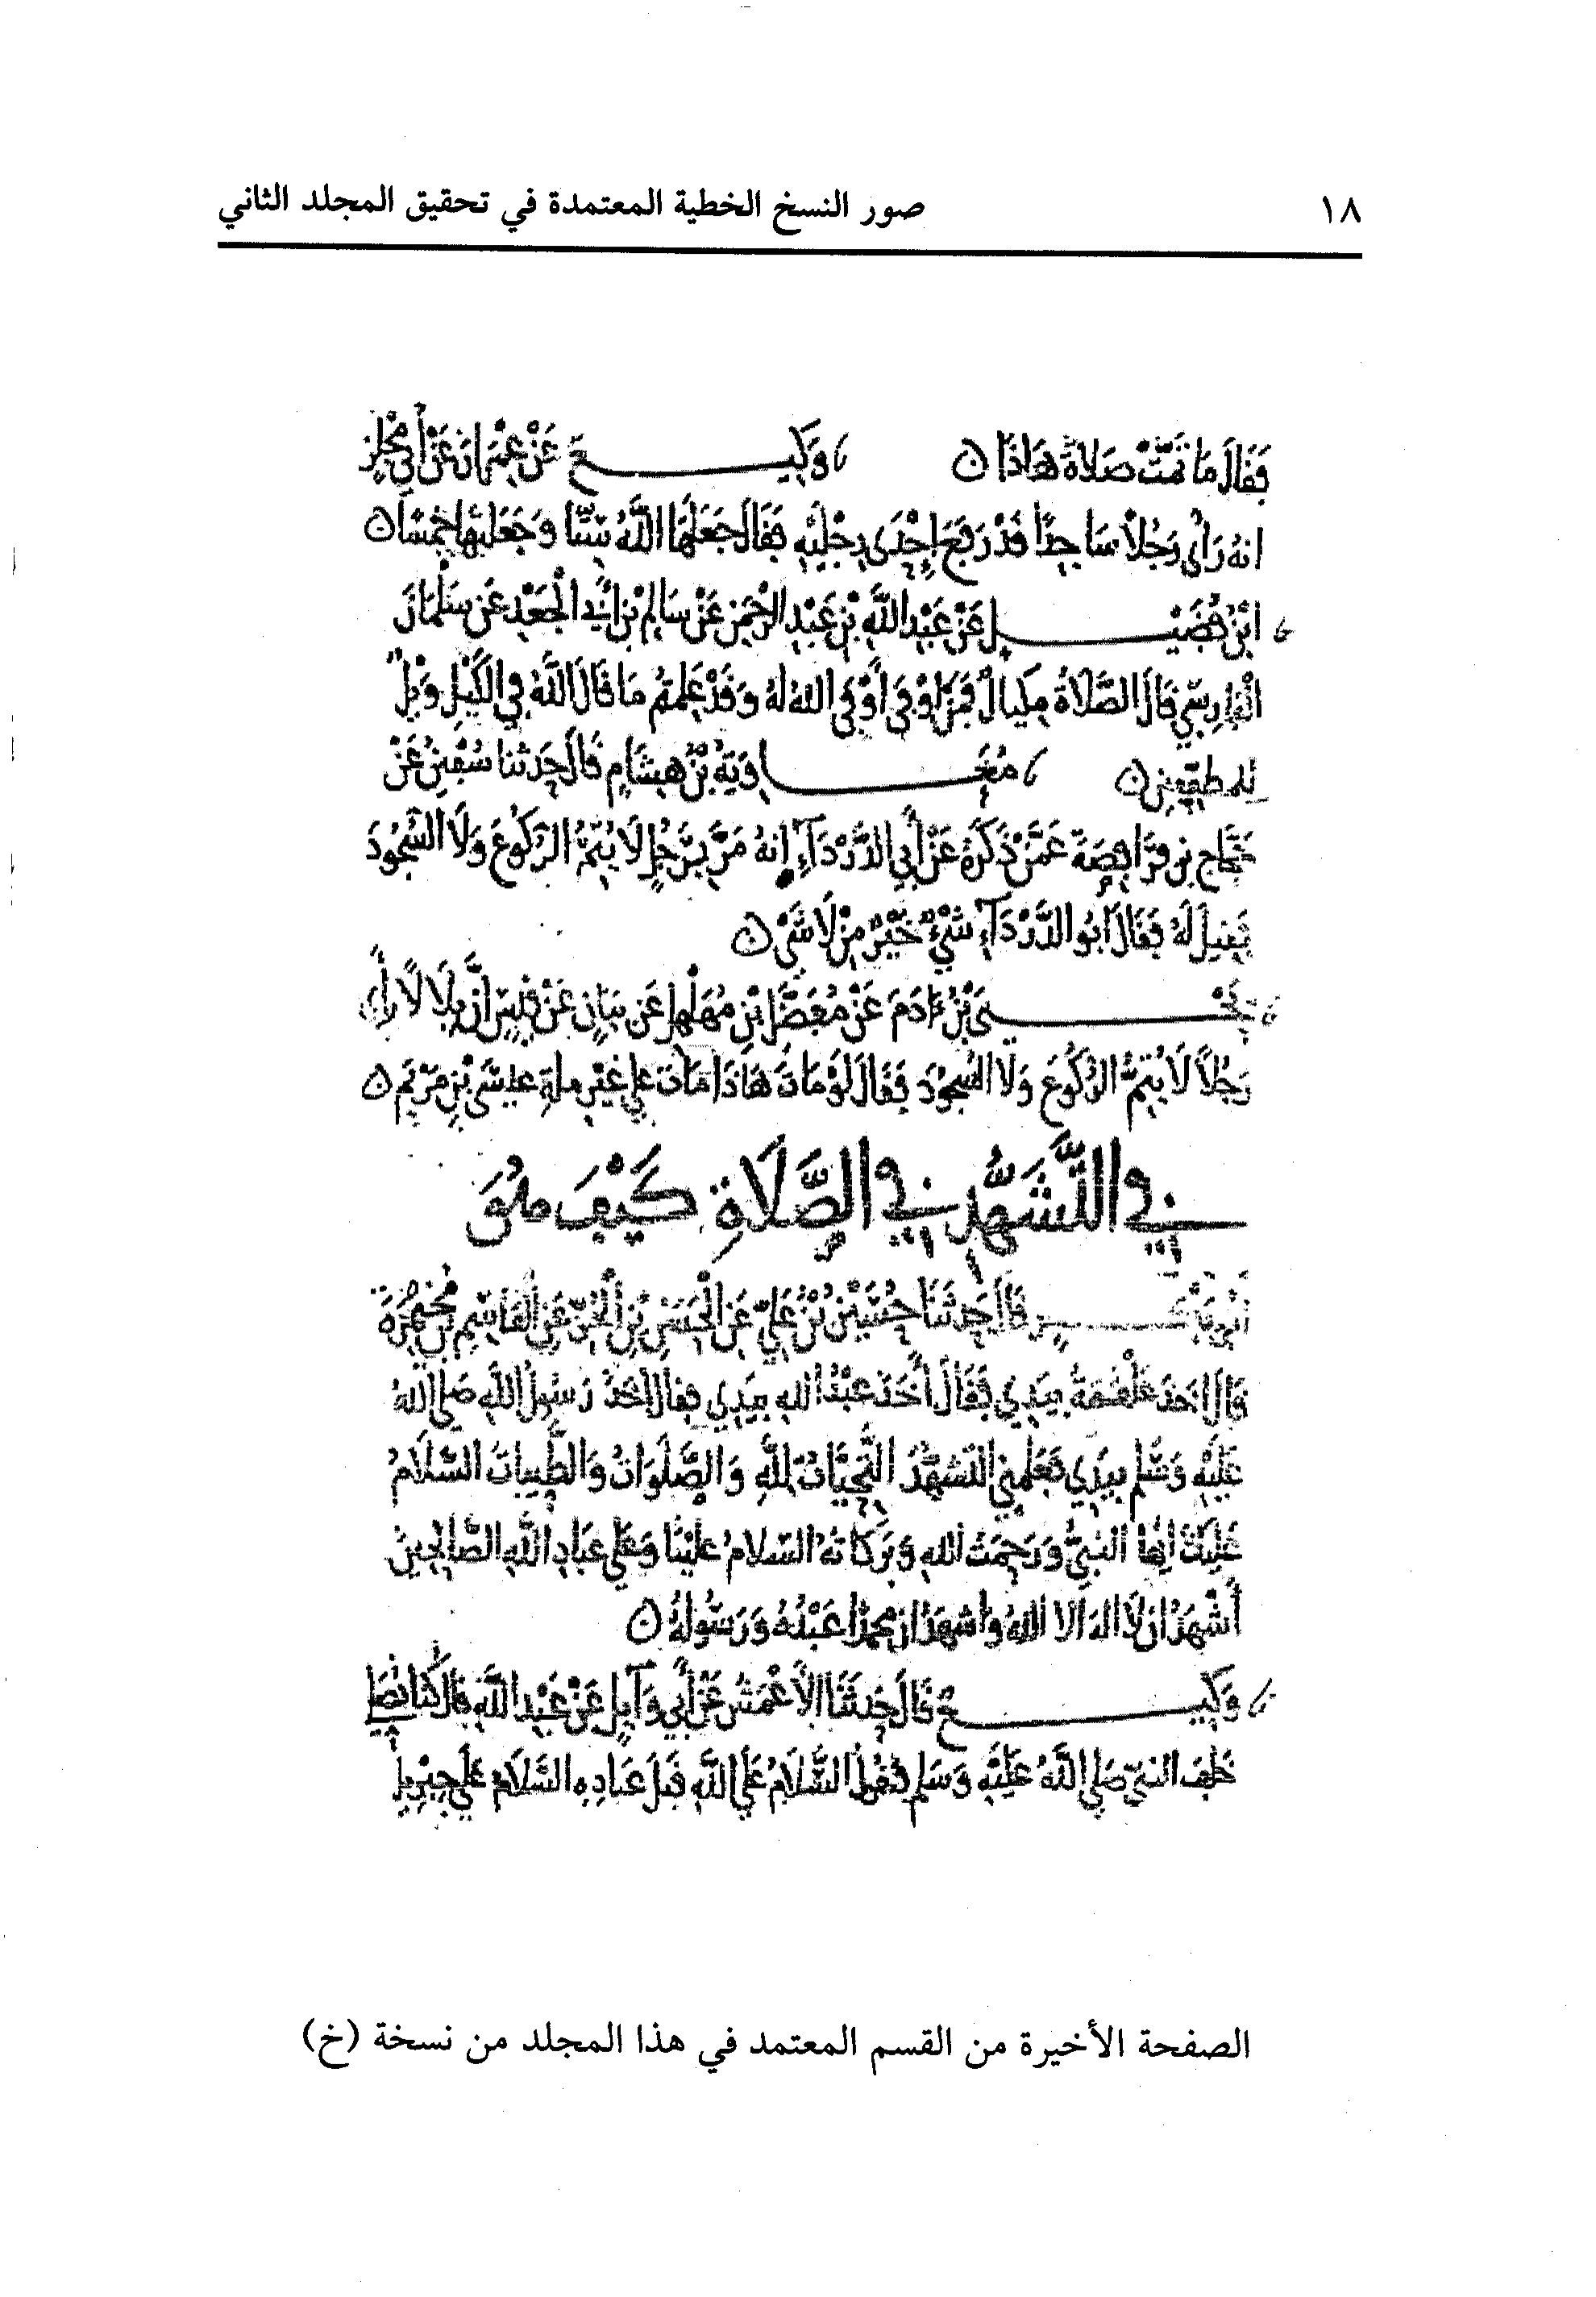 ١٨
صور النسخ الخطية المعتمدة في تحقيق المجلد الثاني
فَقَالَ مَا تَمَّتْ صَلَاةُ هَاذَا ن وَكِيـــع عَنْ عِمْرَانَ عَنْ أَبِي مِجْلَز
انهُ رَأى رَجُلاً سَاجدًا قَدْ رَفَعَ إحْدَى رِجْلَيْهِ فَقَالَ جَعَلَهَا اللَّهُ سِتًّا وَجَعَلتَهَا خَمْسًا ن
ابْنُ فُضَيْـــل عَنْ عَبْدِ اللَّهِ بْنِ عَبْدِ الرَّحْمَنِ عَنْ سَالِمِ بْنِ أَبِي الْجَعْدِ عَن سَلْمَانَ
الْفَارِسِيِّ قَالَ الصَّلَاةُ مِكيَالٌ فَمَنْ اوْفَى أَوْفَى اللهُ لهُ وَقَدْ عَلِمتُم مَا قَالَ اللَّهُ فِي الكَيْلِ وَيْلٌ
لِلمطفّفِينَ ن مُعَـــاوِيَةُ بْنُ هِشَامٍ قَالَ حَدثنا سُفْيَنُ عَنْ
حَجَّاج بن فُرَافِصَةَ عَمَّنْ ذَكَرَهُ عَنْ أَبِي الدَّرْدَآءِ إنهُ مَرَّ بِرَجُلٍ لَا يُتِمُّ الرُّكُوعَ وَلَا السُّجُودَ
فَقِيلَ لَهُ فَقَالَ أَبُو الدَّرْدَآءِ شَيْءٌ خَيْرٌ مِنْ لَا شَيْ ن
يَحْـــيَى بْنُ ءادَمَ عَنْ مُفَضَّلِ بْنِ مُهَلْهِل عَن بَيَانٍ عَنْ قَيْسٍ أَنَّ بِلَالًا رأى
رَجُلاً لَا يُتِمُّ الرُّكُوعَ وَلَا السُّجُودَ فَقَالَ لَوْ مَاتَ هَاذَا مَاتَ عَلى غَيْرِ ملةِ عِيسَى بْنِ مَرْيَم ن
فِي التَّشَهُّدِ فِي الصَّلَاةِ كَيْفَ هُوَ
قَالَ حَدثَنَا حُسَيْنُ بْنُ عَلِيّ عَنِ الْحَسَنِ بْنِ الْحُرّ عَنِ القَاسِمِ بْنِ مُخَيْمِرَةَ
قَالَ اخَذَ عَلْقَمَةُ بِيَدِي فَقَالَ أَخَذَ عَبْدُ اللهِ بِيَدِي فقال أَخَذَ رَسُولُ اللَّهِ صَلى اللهُ
عَلَيْهِ وَسَلم بِيَدِي فَعَلمنِي التشَهُّدَ التَّحِيَّاتُ لِلَّهِ وَالصَّلَوَاتُ وَالطَّيِبَاتُ السَّلَامُ
عَلَيْكَ ايهَا النبيُّ وَرَحمَتُ اللهِ وَبَرَكَاتهُ السَّلامُ عَليْنَا وَعَلى عِبَادِ اللَّهِ الصَّالِحِينَ
أَشْهَدُ ان لَا اله الا اللهُ وَاشهَدُ ان محمدًا عَبْدُهُ وَرَسُولهُ ن
وَكِيـــعٌ قَالَ حَدثَنَا الأَعْمَش عَنْ أَبِي وَآيِلٍ عَنْ عَبْدِ اللَّهِ قال كُنا نُصَلي
خَلفَ النبيّ صَلى اللَّهُ عَلَيْهِ وَسَلم فنقُولُ السَّلَامُ عَلَى اللَّهِ قَبْلَ عِبَادِهِ السَّلَامُ عَلَى جِبْرِيلَ
الصفحة الأخيرة من القسم المعتمد في هذا المجلد من نسخة (خ)